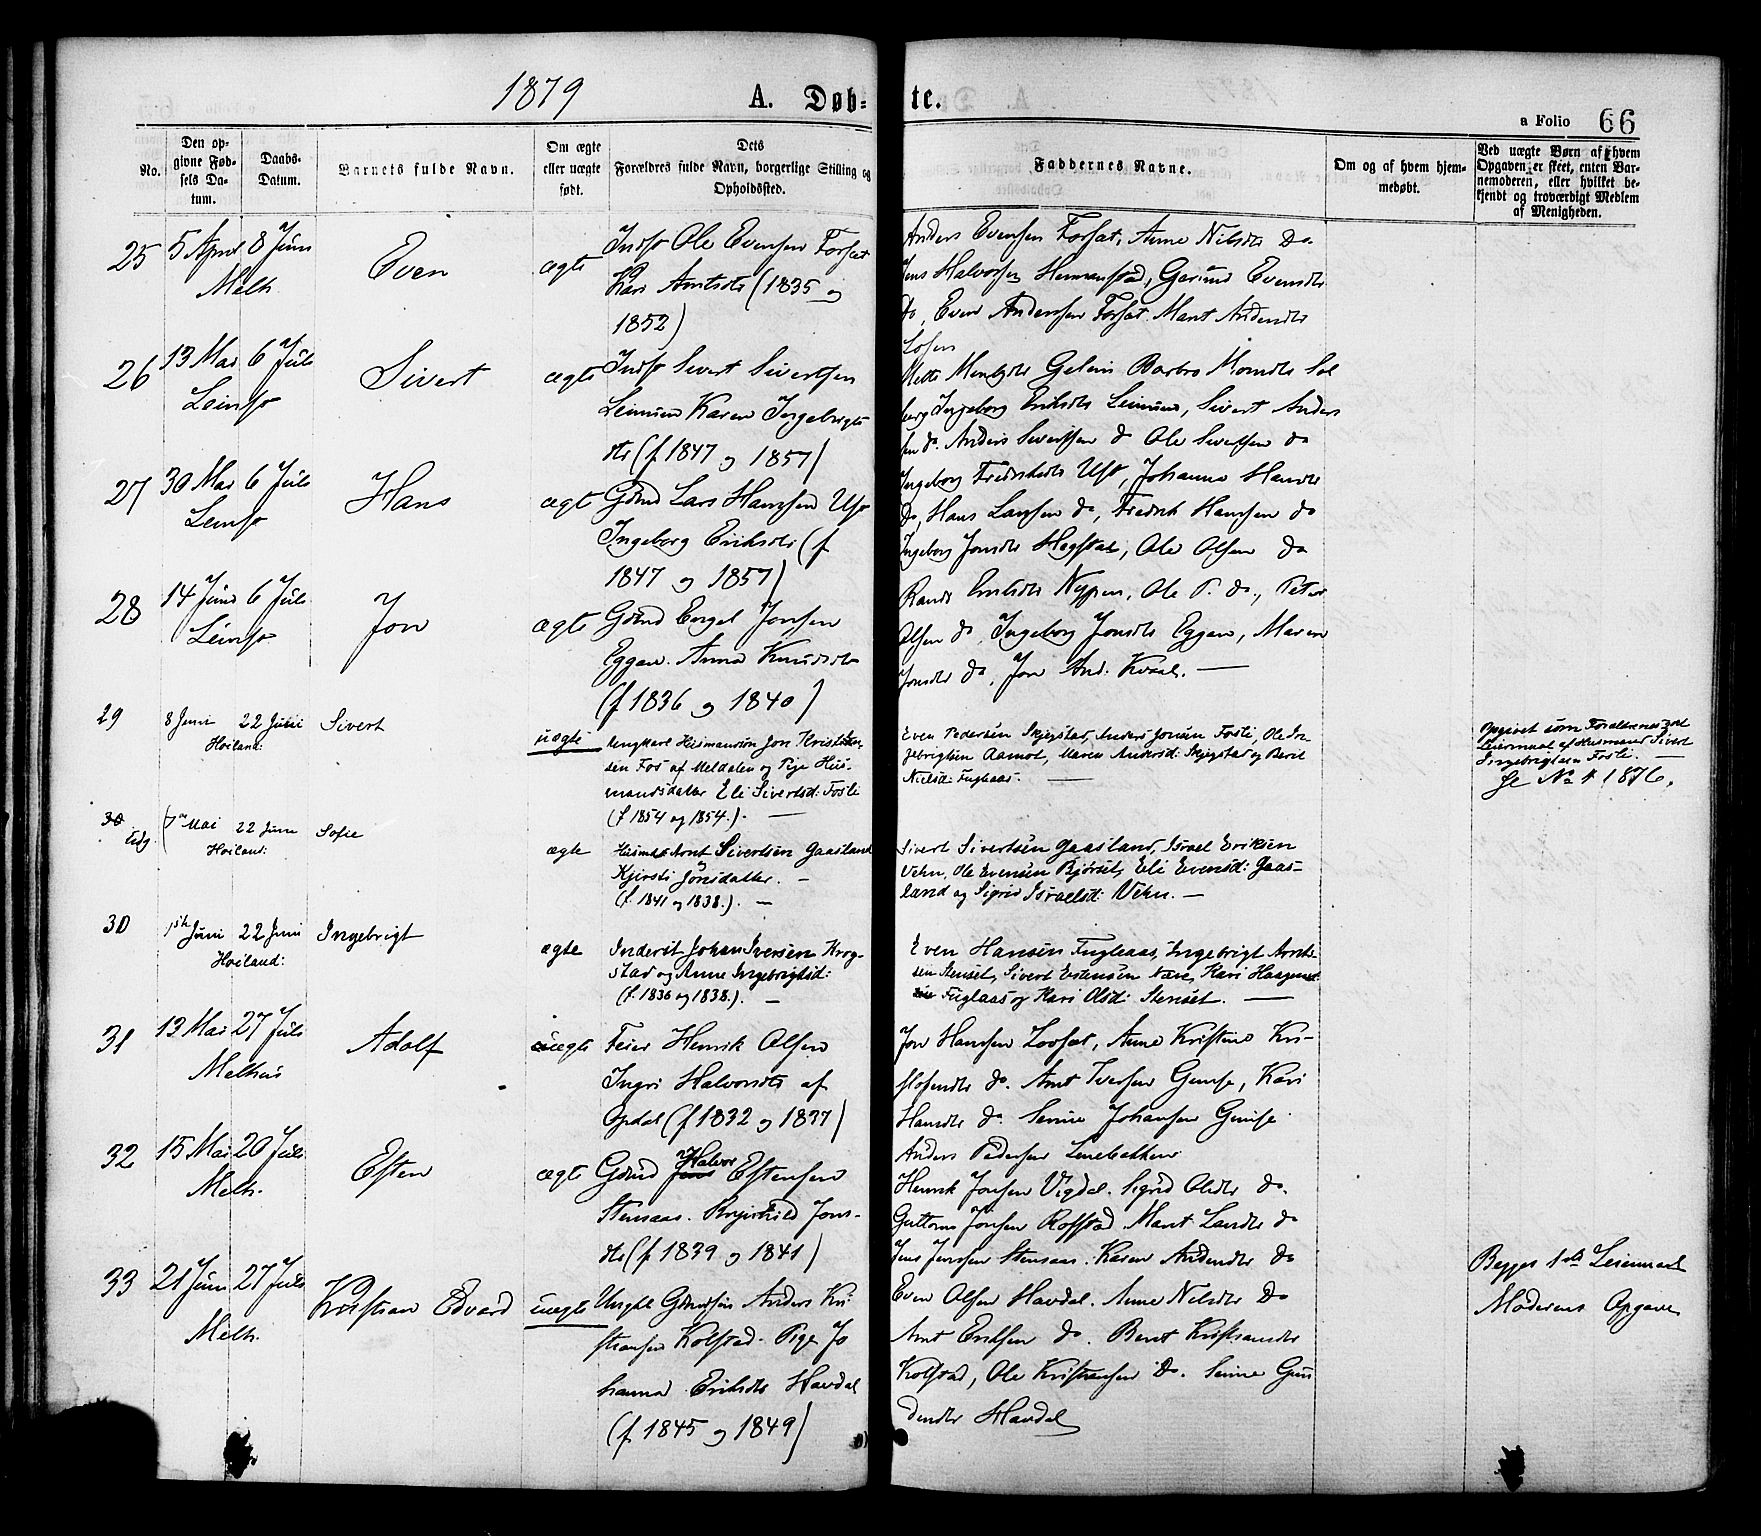 1879 A. Døb- te.
a Folio 66
No.
Den op-
givne Fød-
sels Da-
tum.
Daabs-
Datum.
Barnets fulde Navn.
Om ægte
eller uægte
født.
Dets
Forældres fulde Navn, borgerlige Stilling og
Opholdssted.
Faddernes Navne.
Om og af hvem hjem-
medøbt.
Ved uægte Børn af hvem
Opgaven er skeet, enten Bar-
nemoderen, eller hvilket be-
kjendt og troværdigt Medlem
af Menigheden.
25 5 April 8 Juni Even ægte
Melh.
Inds Ole Evensen Forsæt
Kari Arntsdtr (1835 og
1852)
Anders Evensen Forsæt, Anne Nilsdtr do
Jens Halvorsen Hermanstad, Gurund Evensdtr
do, Even Andersen Forsæt Marit Andersdtr
Losen
26 13 Mai 6 Juli Sivert ægte
Leinst
Inds Sivert Sivertsen
Leinum Karen Ingebrigts
dtr (f. 1847 og 1857)
Mette
berg Ingeborg Eriksdtr Leinum, Sivert Anders
sen do. Anders Sivertsen do Ole Sivertsen do
27 30 Mai 6 Juli Hans ægte
Leinst
Gdmd Lars Hanssen Ust
Ingeborg Eriksdtr (f
1847 og 1857)
Ingeborg Fredriksdtr Ust, Johanna Hansdtr
do, Hans Larssen do, Fredrik Hanssen do
Ingeborg Jonsdtr Hagstad, Ole Olsen do
28 14 Juni 6 Juli Jon ægte
Leinst
Gdmd Engel Jonsen
Eggen. Anna Knudsdtr
(f. 1836 og 1840)
Randi Eriksdtr Nypen, Ole P. do., Peter
Olsen do, Ingeborg Jonsdtr Eggen, Maren
Jonsdtr do, Jon And. Kvaal. —
29 8 Juni 22 Juni Sivert uægte
Høiland:
Ungkarl Husmandsøn Jon Kristoffer-
sen Fos af Meldalen og Pige Hus-
mandsdatter Eli Sivertsd: Fosli
(f. 1854 og 1854). —
Even Pedersen Skjerstad, Anders Jonsen Fosli, Ole In-
gebrigtsen Aamot, Maren Andersd: Skjerstad og Beret
Nielsd: Fuglaas. —
Opgivet som Forældrenes
Leiermaal af Husmand Sivert
Ingebrigtsen Fosli. —
Se No 1 1876.
30 Udg. 7de Mai 22 Juni Sofie ægte
Høiland:
Husmd Arnt Sivertsen Gaasland
og Kjersti Jonsdatter. —
(f. 1841 og 1838). —
Sivert Sivertsen Gaasland, Israel Eriksen
Vehn, Ole Evensen Bjørset, Eli Evensd: Gaas-
land og Sigrid Israelsd: Vehn. —
30 1ste Juni 22 Juni Ingebrigt ægte
Høiland:
Inderst Johan Iversen Krog-
stad og Anne Ingebrigtsd:
(f. 1836 og 1838). —
Even Hansen Fuglaas, Ingebrigt Arnt-
sen Stenset, Sivert Estensen Næve, Kari Haagens-
Fuglaas og Kari Olsd: Stenset. —
31 13 Mai 27 Juli Adolf uægte
Melhus
Feier Henrik Olsen
Ingri Halvorsdtr af
Opdal (f 1832 og 1837)
Jon Hanssen Losæt, Anne Kristine Kri-
stofersdtr do. Arnt Iversen Gimse, Kari
Hansdtr do. Serine Johansen Gimse
Anders Pedersen
32 15 Mai 20 Juli Esten ægte
Melh.
Gdmd Halvor Estensen
Stensaas. Ragnhild Jons-
dtr (f. 1839 og 1841)
Henrik Jonsen Vigdal. Sigrid Olsdtr do.
Guttorm Jonsen Rofstad Marit Larsdtr do
Jens Jenssen Stensaas. Karen Andersdtr do
33 21 Juni 27 Juli Kristian Edvard uægte
Melh.
Ungkl Gdmdsøn Anders Kri
stiansen Kolstad. Pige Jo
hanna Eriksdtr Havdal
(f. 1845 og 1849)
Even Olsen Havdal. Anne Nilsdtr do
Arnt Eriksen do. Berit Kristiansdtr
Kolstad, Ole Kristiansen do. Serine Gun
dersdtr Havdal
Begges 1ste Leiermaal
Moderens Opgave